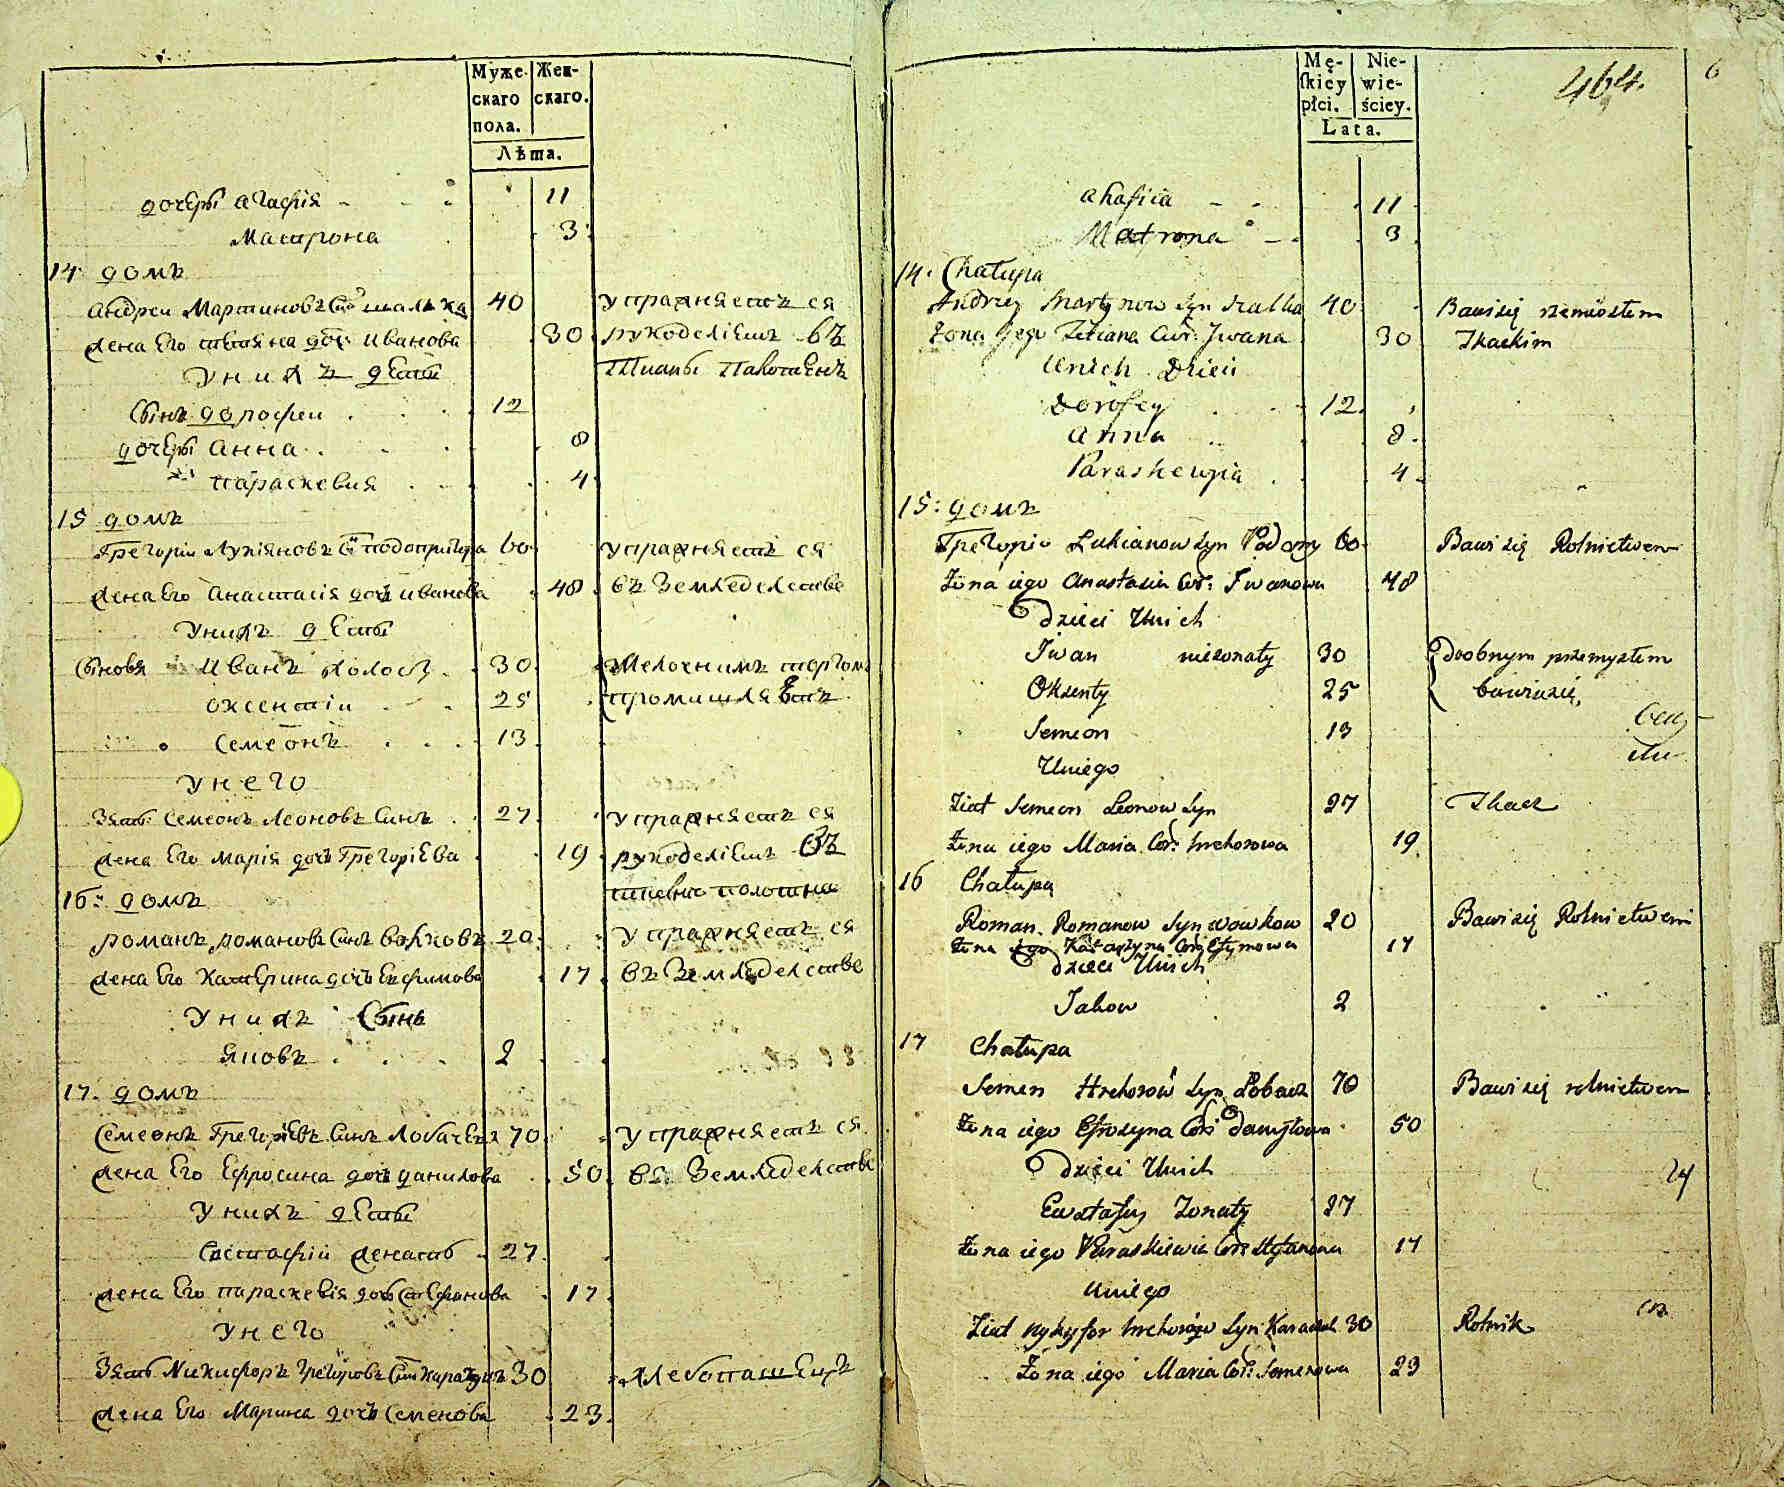 Муже- Жен-
скаго скаго.
пола.
Лѣта.
дочеры агафія 11
Матрона 3
14 домъ
андреи Мартиновъ Сынъ шалька 40 упражняетъ ся
жена Его татяна доч: иванова 30 рукоделіемъ въ
унихъ дети
Сынъ дорофеи 12
дочеры анна 8
параскевия 4
15 домъ
Грегории Лукіяновъ Сын подопригора 60 упражняетъ ся
жена Его анастасія доч иванова 48 въ Земледелстве
унихъ дети
Сыновя иванъ холостъ 30 Мелочнимъ торгом
оксентии 25 промишляетъ
Семеонъ 13
унего
Зять Семеонъ Леоновъ Синъ 27 упражняетъ ся
жена Его марія дочъ Грегоріева 19 рукоделіемъ въ
16: домъ
романъ романовъ Синъ вовковъ 20 упражняетъ ся
жена Его Катерина дочъ Ефимова 17 въ Земледелстве
унихъ Сынъ
яковъ 2
17. домъ
Семеонъ Грегоріевъ Синъ Лобачевъ 70 упражняетъ ся
жена Его Ефросина дочъ данилова 50 въ Земледелстве
унихъ дети
Евстафіи женатъ 27
жена Его параскевія доч Стефанова 17
унего
Зять Никифоръ Грегоровъ Син 30 хлебопашецъ
жена Его Марина дочъ Семенова 23
Mę- Nie-
skiey wie-
płci. ściey.
Lata.
464. 6
ahafia 11
Matrona 3
14. Chałupa
Andrzey Martynow syn szalka 40 Bawi się rzemiosłem
Żona jego Tatiana Cor: Jwana 30 Tkackim
Unich Dzieci
Dorofey 12
anna 8
Paraskewia 4
15: домъ
Грегорiи Lukianow syn Podopry 60 Bawi się Rolnictwem
Żona iego Anastasia Cor: Iwanowa 48
Dzieci Unich
Iwan nieżonaty 30 Drobnym przemysłem
Oksenty 25 bawią się,
Semeon 13
Uniego
Ziat Semeon Leonow syn 27 Tkacz
Żona iego Maria Cor: hrehorowa 19
16 Chałupa
Roman Romanow syn wowkow 20 Bawi się Rolnictwem
Żona iego Katarzyna Cor: Efymowa 17
dzieci Unich
Jakow 2
17 Chałupa
Semen Hrehorow syn Łobacz 70 Bawi się rolnictwem
Żona iego Efrozyna Cor: Danyłowa 50
Dzieci Unich
Ewstafiy Żonaty 27
Żona iego Paraskiewia Cor: Stefanowa 17
uniego
Ziat Nykyfor hrehorow syn 30 Rolnik
Żona iego Maria Cor: Semenowa 23